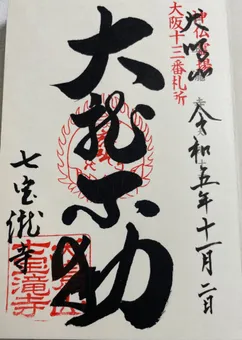 神仏霊場
大阪十三番札所
犬鳴山
令和五年十一月二日
大聖不動
七宝瀧寺
七宝滝寺